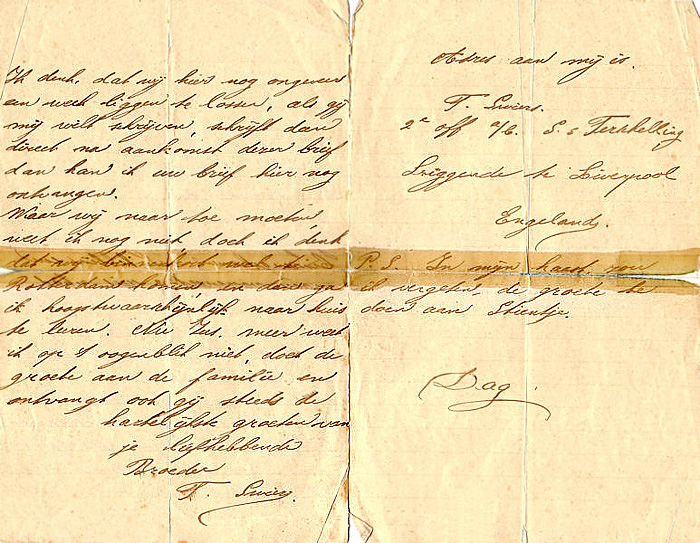 Ik denk, dat wij hier nog ongeveer
een week liggen te lossen, als gij
mij wilt schrijven, schrijft dan
direct na aankomst dezer brief
dan kan ik uw brief hier nog
ontvangen.
Waar wij naar toe moeten
weet ik nog niet doch ik denk
dat wij binnenkort met
Rotterdam komen en dan ga
ik hoogstwaarschijnlijk naar huis
te keren. Nu Zus, meer weet
ik op 't oogenblik niet, doet de
groete aan de familie en
ontvangt ook gij steeds de
hartelijkste groeten van
je liefhebbende
Broeder
T. Swiers
Adres aan mij is.
T. Swiers.
2e off a/b. S.s Terschelling
Liggende te Liverpool
Engeland.
P.S. In mijn haast
ik vergeten, de groete te
doen aan Stientje.
Dag.